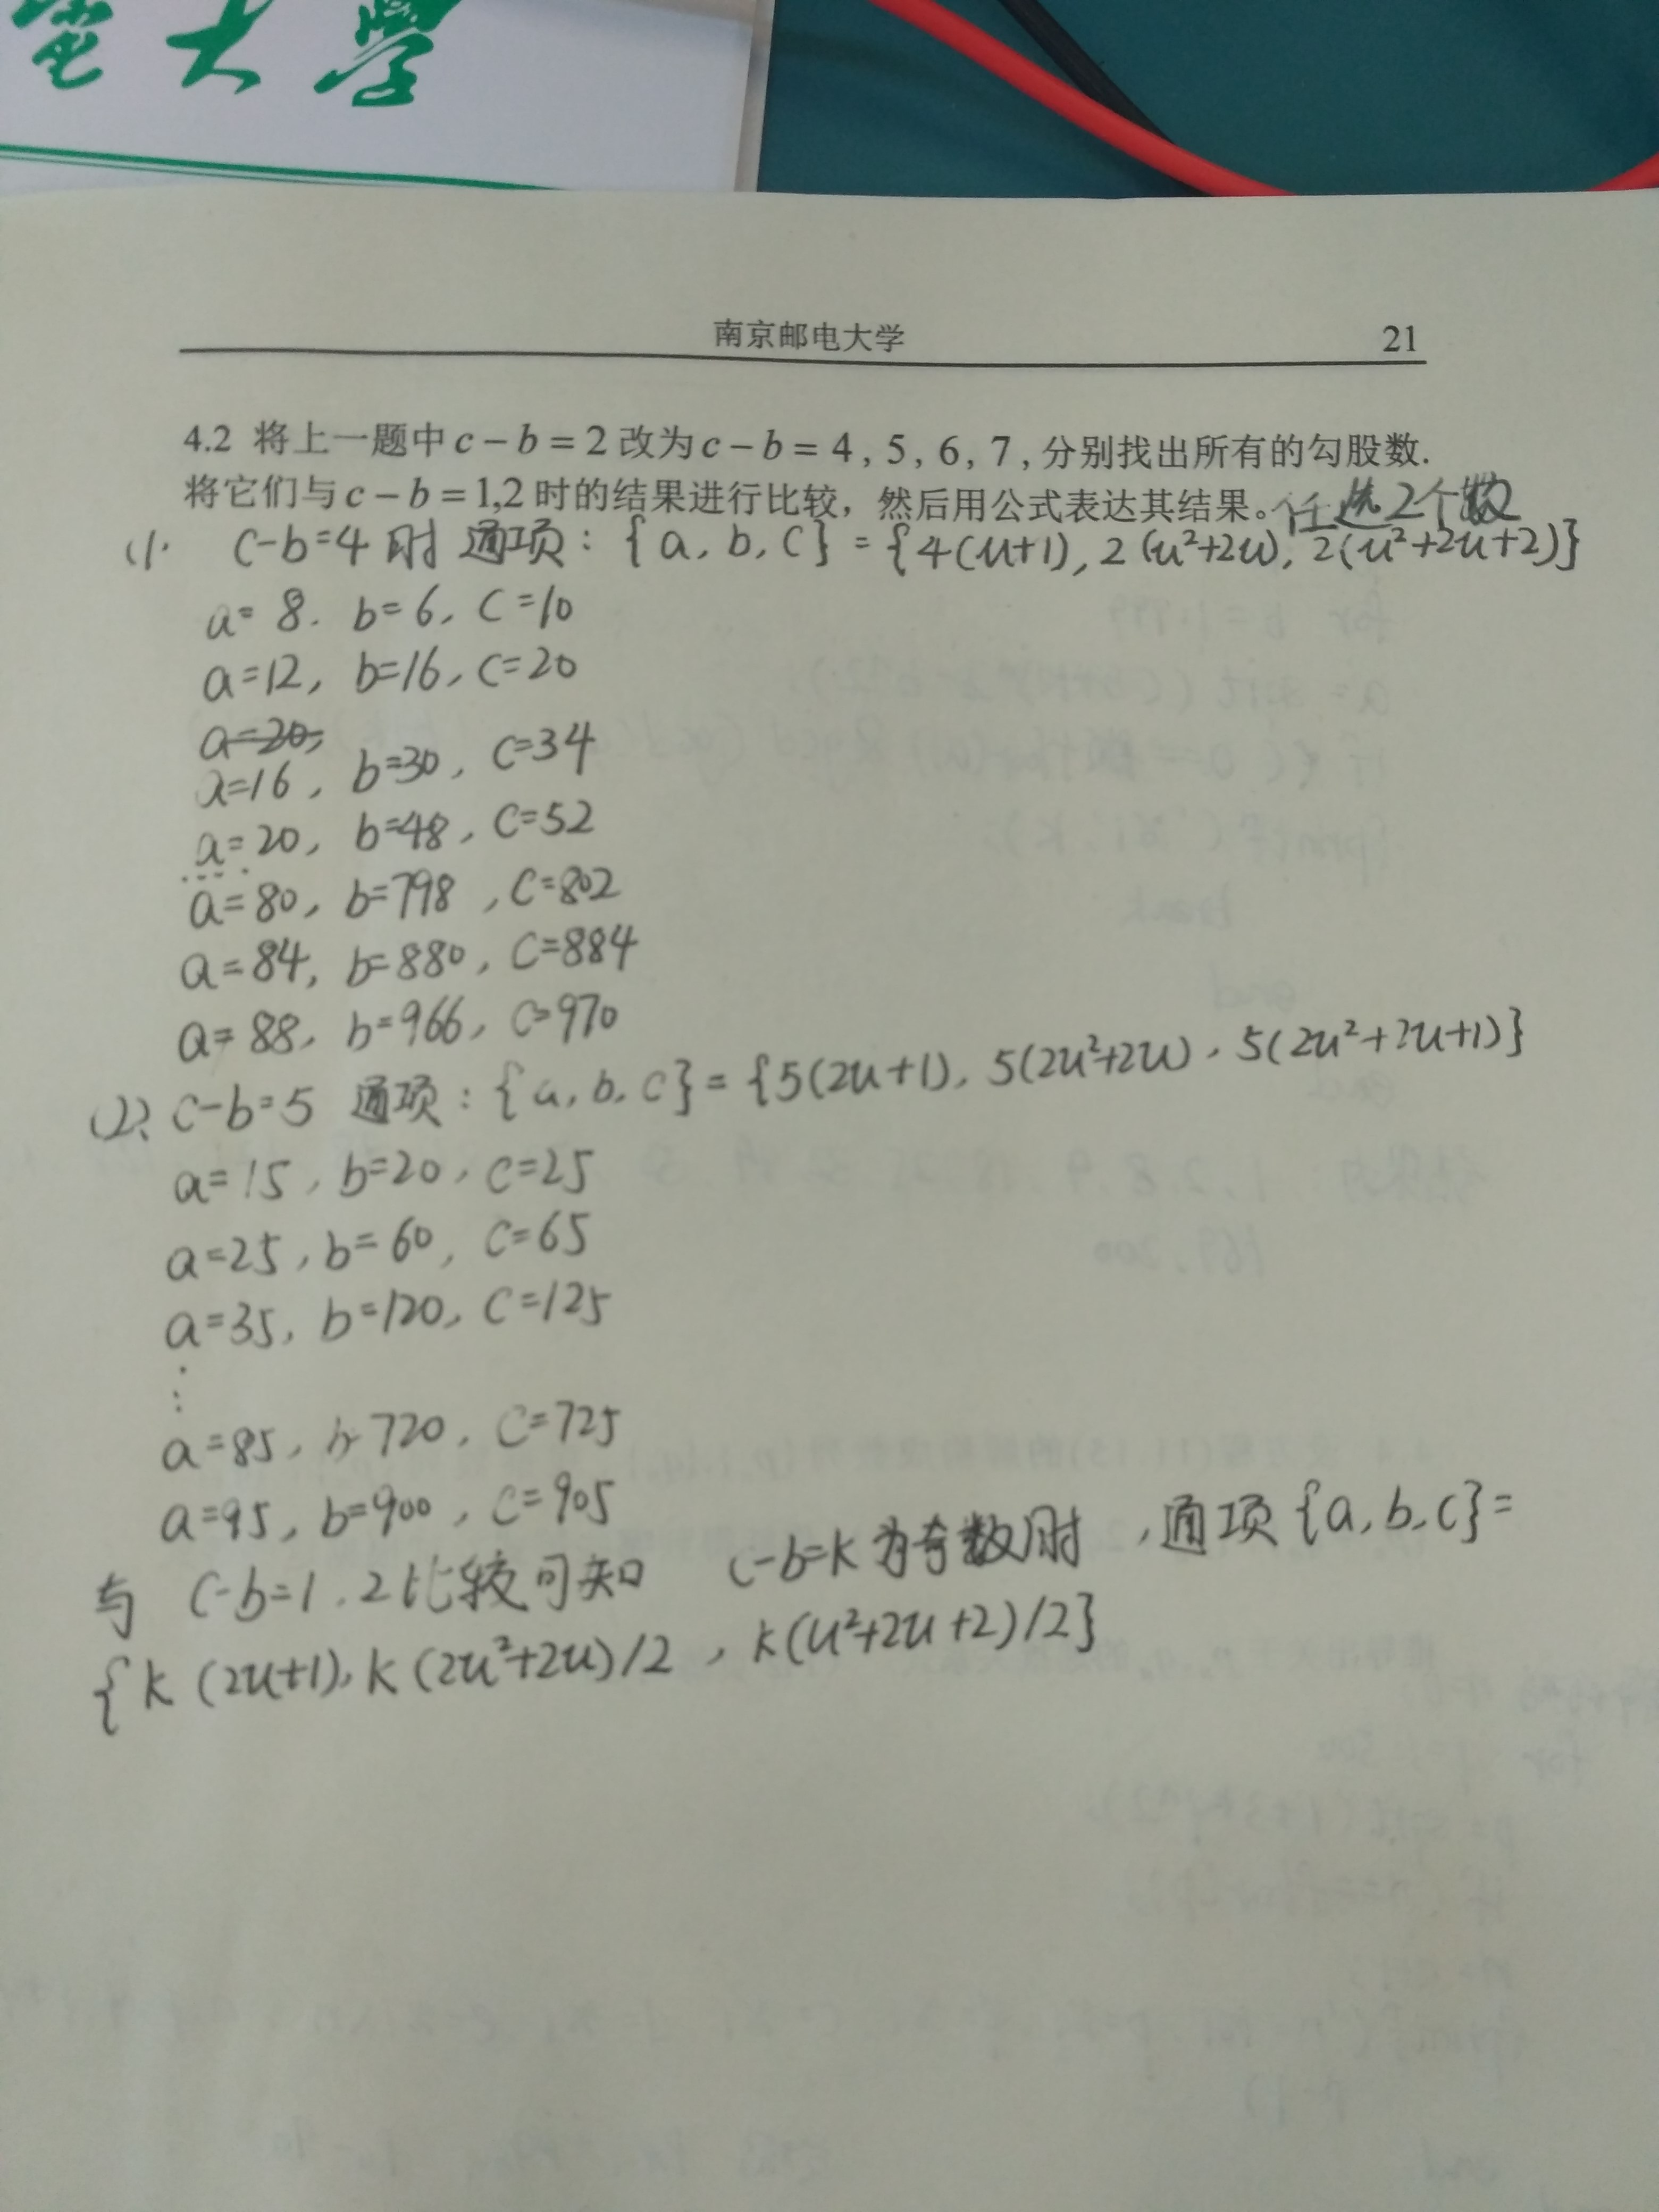 大学
南京邮电大学 21
4.2 将上一题中 c－b＝2 改为 c－b＝4, 5, 6, 7, 分别找出所有的勾股数.
将它们与 c－b＝1,2 时的结果进行比较，然后用公式表达其结果。任选2个数
(1). c-b=4时 通项：{a, b, c} = {4(u+1), 2(u²+2u), 2(u²+2u+2)}
a=8. b=6, c=10
a=12, b=16, c=20
a=20,
a=16, b=30, c=34
a=20, b=48, c=52
......
a=80, b=798, c=802
a=84, b=880, c=884
a=88, b=966, c=970
(2). c-b=5 通项：{a, b, c} = {5(2u+1), 5(2u²+2u), 5(2u²+2u+1)}
a=15, b=20, c=25
a=25, b=60, c=65
a=35, b=120, c=125
⋮
a=85, b=720, c=725
a=95, b=900, c=905
与 c-b=1,2比较可知 c-b=k为奇数时，通项{a,b,c}=
{k(2u+1), k(2u²+2u)/2, k(u²+2u+2)/2}